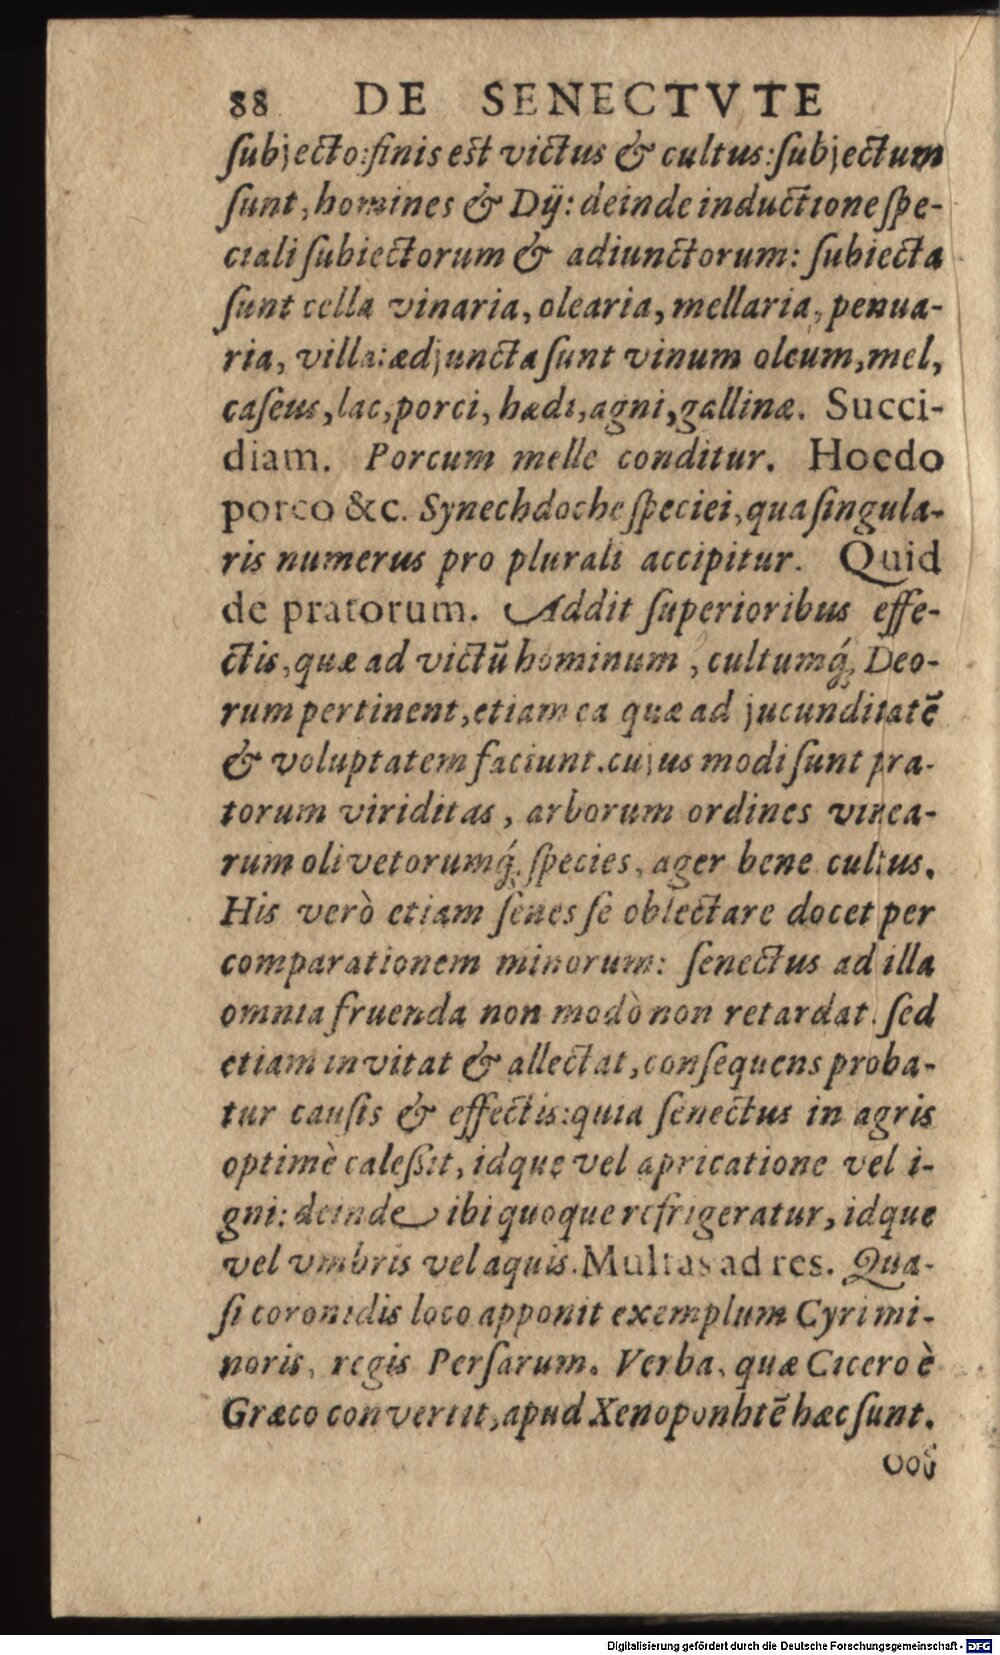 88 DE SENECTVTE
ſubjecto: finis est victus & cultus: ſubjectum
ſunt, homines & Dÿ: deinde inductione ſpe-
ciali ſubiectorum & adiunctorum: ſubiecta
ſunt cella vinaria, olearia, mellaria, penua-
ria, villa: ædjuncta ſunt vinum oleum, mel,
caſeus, lac, porci, hædi, agni, gallinæ. Succi-
diam. Porcum melle conditur. Hoedo
porco &c. Synechdoche ſpeciei, qua ſingula-
ris numerus pro plurali accipitur. Quid
de pratorum. Addit ſuperioribus effe-
ctis, quæ ad victũ hominum, cultumq́; Deo-
rum pertinent, etiam ea quæ ad jucunditatẽ
& voluptatem faciunt. cujus modi ſunt pra-
torum viriditas, arborum ordines vinea-
rum olivetorumq́; ſpecies, ager bene cultus.
His verò etiam ſenes ſe oblectare docet per
comparationem minorum: ſenectus ad illa
omnia fruenda non modò non retardat. ſed
etiam invitat & allectat, conſequens proba-
tur cauſis & effectis: quia ſenectus in agris
optimè caleſſit, idque vel apricatione vel i-
gni: deinde ibi quoque refrigeratur, idque
vel vmbris vel aquis. Multas ad res. Qua-
ſi coronidis loco apponit exemplum Cyri mi-
noris, regis Perſarum. Verba, quæ Cicero è
Græco convertit, apud Xenoponhtẽ hæc ſunt.
Digitalisierung gefördert durch die Deutsche Forschungsgemeinschaft - DFG